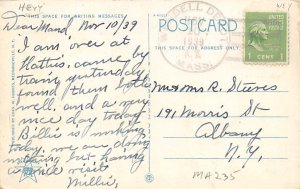 HEVY
THIS SPACE FOR MESSAGE
POSTCARD
THIS SPACE FOR ADDRESS ONLY
Dear Maud, Nov 10/39
I am over at
Hattie's, came by
train yesterday
found them both
well, and a very
nice day today
Billie is making
today, we are doing
nothing but having
a nice visit
Millie,
DELL
1939
MASS.
UNITED STATES
1 CENT
Mr and Mrs R. Steeves
191 Morris St
Albany
N.Y.
MA235